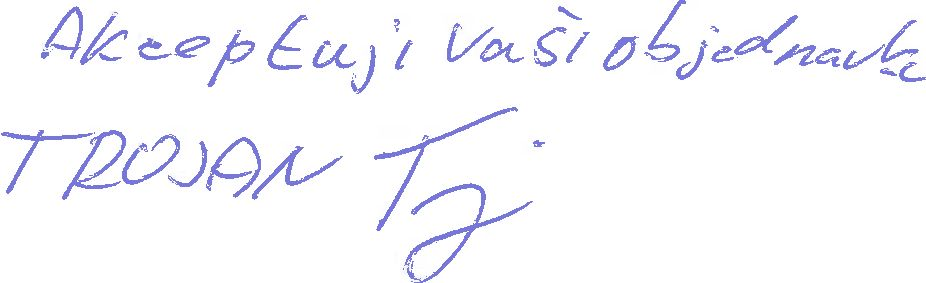 Akceptuji Vaši objednavku
TROJAN Tj